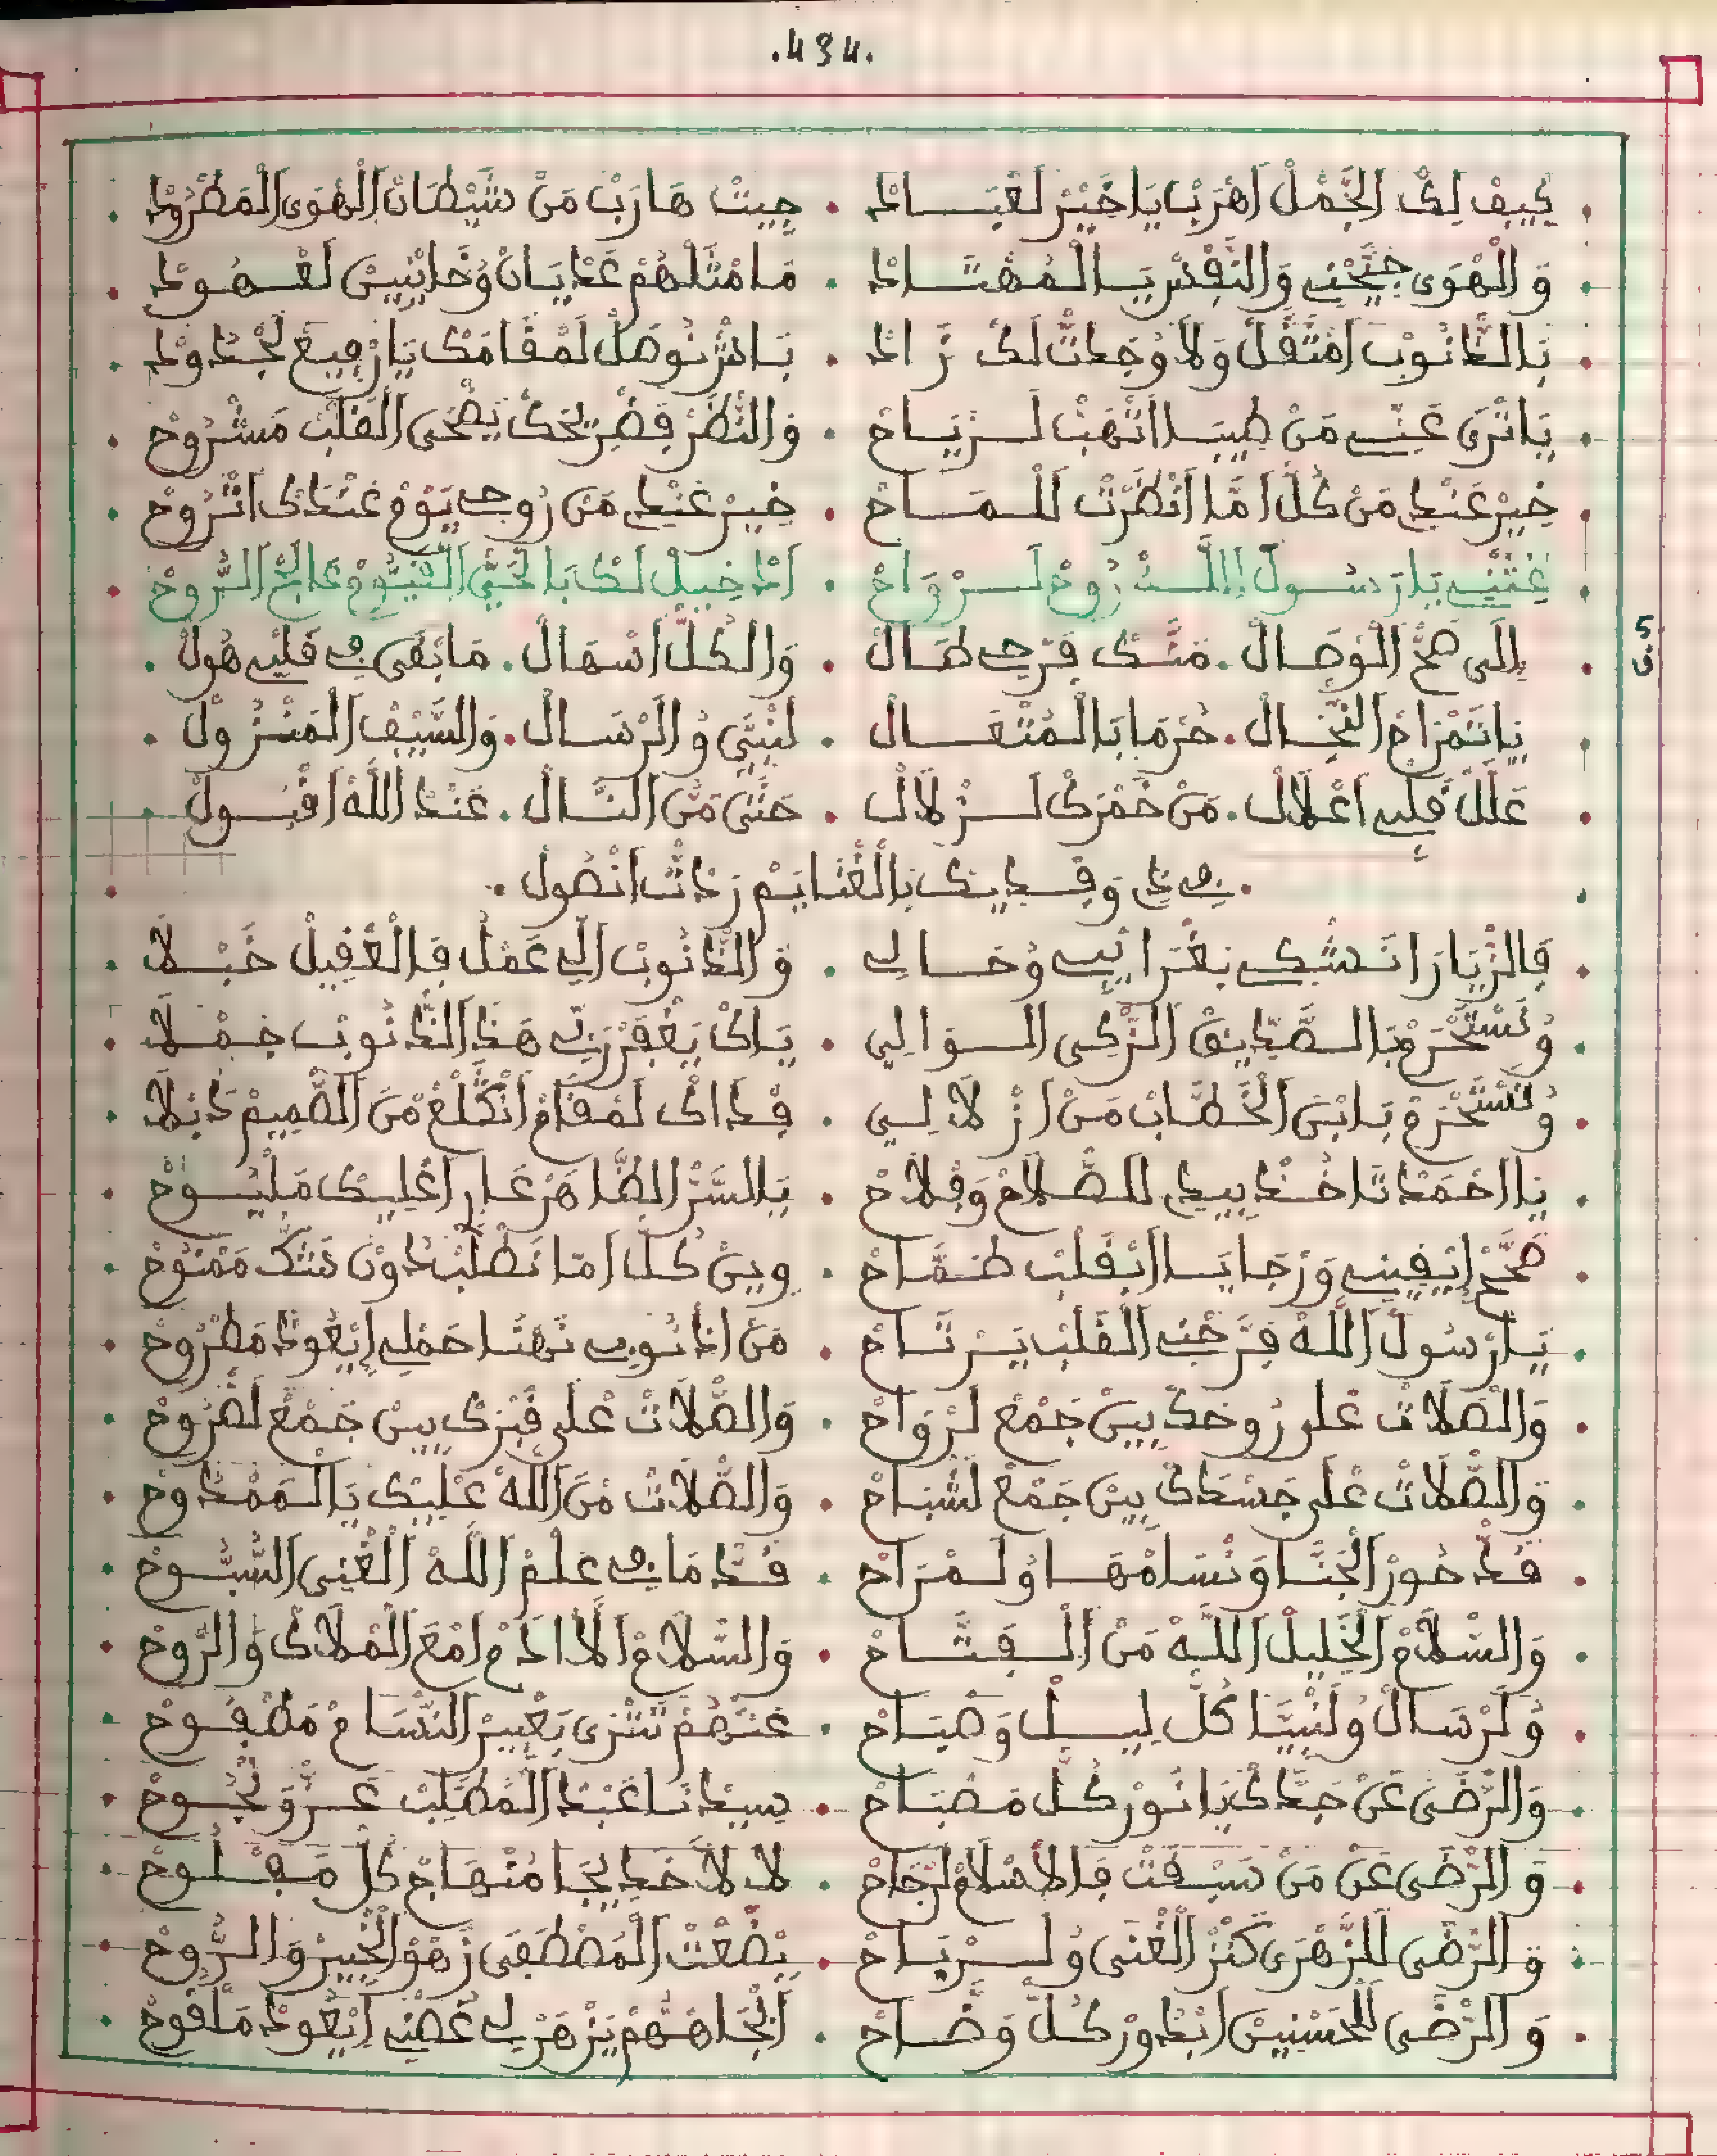 .434.
كيف لك الجمل اهرب يا خير لعباد . جيت هارب من شيطان الهوى المطرود
والهوى جيحني والنفس يا المهتاد . ما مثلهم عديان وخاينين لعهود
بالذنوب امثقل ولا وجدت لك زاد . باش نوصل لمقامك يا رفيع لجدود
يا ترى عني من طيبا اتهب لرياح . والنظر فضريحك يضحى القلب مشروح
خير عندي من كل اما انظرت للماح . خير عندي من روحي يوم عندك اتروح
غثني يا رسول الله روح لرواح . ادخيل لك بالحي القيوم عالج الروح
إلى صح الوصال . منك فرحي طال . والكل اسهال . ما بقى في قلبي هول
5 ف
يا تمزاح النجال . حرما بالمتعال . لنبي والرسال . والسيف المنزول
علل قلبي اعلال . من خمرك لزلال . حتى من النال . عند الله اقبول
في وفديك بالغنايم زدت انصول
فالزيارا نشكي بغرايبي وحالي . والذنوب اللي عمل فالغفيل خبلا
ونستحرم بالصديق الزكي الوالي . ياك يغفر ربي هذ الذنوب جملا
ونستحرم بابن الخطاب من ازلالي . فذاك لمقام انكلع من الصميم دبلا
يا احمد تاخذ بيدي للصلاح وفلاح . بالسر الظاهر عار اعليك مليوح
صحح ايقيني ورجايا ابقلب طماح . وين كل اما نطلب دون منك ممنوح
يا رسول الله فرجني القلب يرتاح . من اذنوبي نهنا حملي ايعود مطروح
والصلات على روحك بين جمع لرواح . والصلات على قبرك بين جمع لضروح
والصلات على جسدك بين جمع لشباح . والصلات من الله عليك يا الممدوح
قد حور الجنا ونسامها ولمراح . قد ما في علم الله الغني السبوح
والسلام الخليل الله من الفتاح . والسلام الادم امع الملاك والروح
ولرسال ولنبيا كل ليل وصباح . عنهم تترى بعبير النسام مطفوح
والرضى عن جدك يا نور كل مصباح . سيدنا عبد المطلب عز وبحبوح
والرضى عن من سبقت فالاسلام لرجاح . لا لا خديجا منهاج كل مفلوح
والرضى للزهرى كنز الغنى ولرباح . بضعت المصطفى زهو الخير والروح
والرضى للحسنين ابدور كل وضاح . ابجاههم يزهر لي غصني ايعود ملقوح